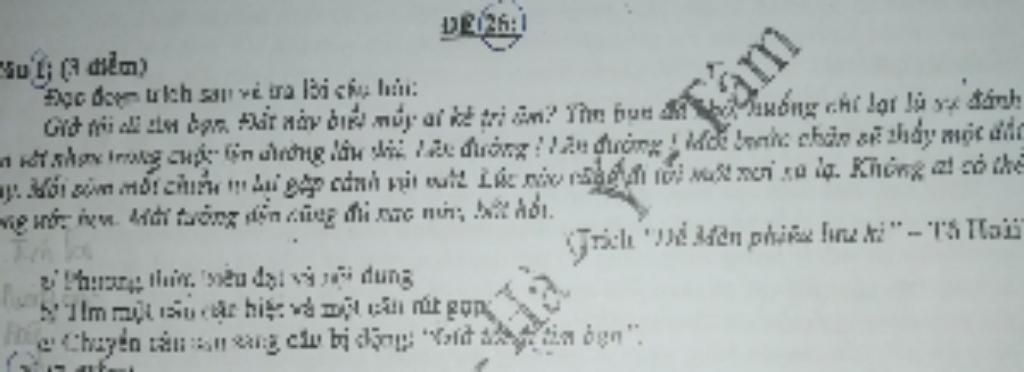 ĐỀ 26:
Câu 1: (3 điểm)
Đọc đoạn trích sau và trả lời câu hỏi:
Giờ tôi đi tìm bạn. Đất này biết mấy ai kẻ tri âm? Tìm bạn đã khó, huống chi lại là sự đánh
trong cuộc lên đường lâu dài. Lên đường! Lên đường! Mỗi bước chân sẽ thấy một đất
Mỗi sớm mỗi chiều ta lại gặp cảnh vật mới. Lúc nào cũng đi tới một nơi xa lạ. Không ai có thể
ước hơn. Mới tưởng đến cũng đủ nao nức, hồi.
(Trích "Dế Mèn phiêu lưu kí" – Tô Hoài
a/ Phương thức biểu đạt và nội dung
b/ Tìm một câu đặc biệt và một câu rút gọn
c/ Chuyển câu sau sang câu bị động: "Giờ tôi đi tìm bạn".
Hà Y Tâm